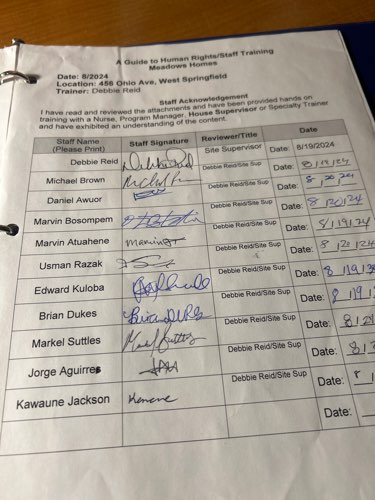 A Guide to Human Rights/Staff Training
Meadows Homes
Date: 8/2024
Location: 456 Ohio Ave, West Springfield
Trainer: Debbie Reid
Staff Acknowledgement
I have read and reviewed the attachments and have been provided hands on
training with a Nurse, Program Manager, House Supervisor or Specialty Trainer
and have exhibited an understanding of the content.
Staff Name (Please Print) Staff Signature Reviewer/Title Date
Debbie Reid Debbie Reid Site Supervisor Date: 8/19/2024
Michael Brown Debbie Reid/Site Sup Date: 8/19/24
Daniel Awuor Debbie Reid/Site Sup Date: 8/20/24
Marvin Bosompem Debbie Reid/Site Sup Date: 8/20/24
Marvin Atuahene Debbie Reid/Site Sup Date: 8/19/24
Usman Razak Debbie Reid/Site Sup Date: 8/20/24
Edward Kuloba Debbie Reid/Site Sup Date: 8/19/
Brian Dukes Brian Dukes Debbie Reid/Site Sup Date: 8/19/
Markel Suttles Debbie Reid/Site Sup Date: 8/2
Jorge Aguirres Debbie Reid/Site Sup Date: 8/
Kawaune Jackson Debbie Reid/Site Sup Date: 8
Date: